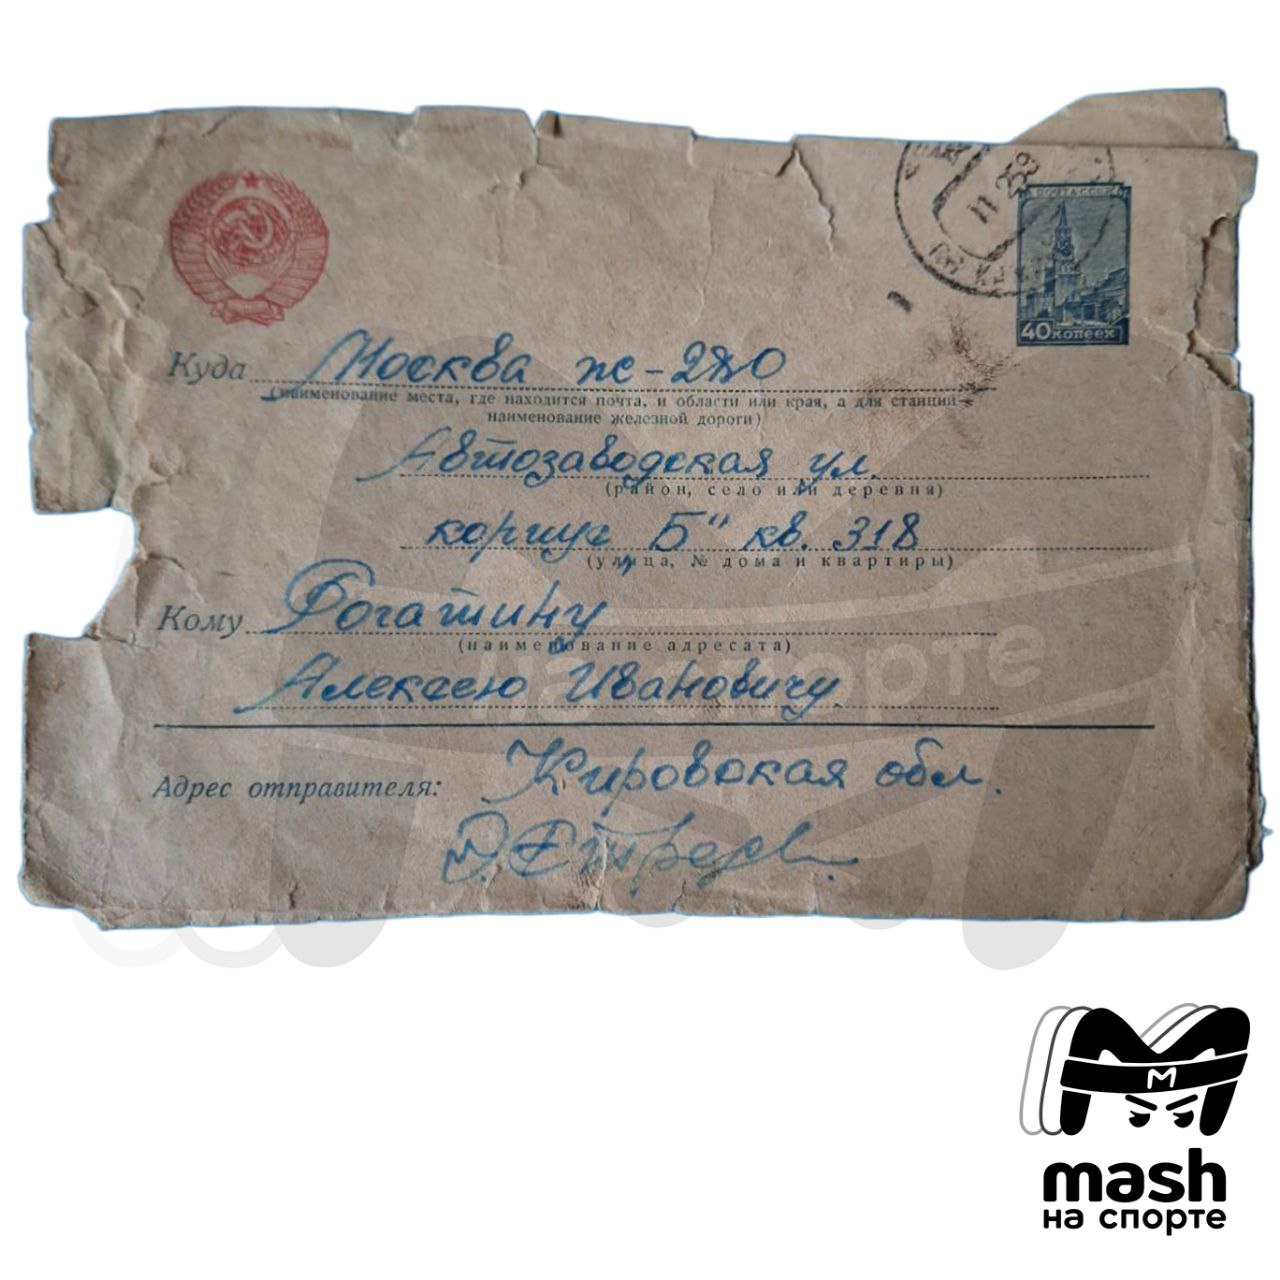 ПОЧТА СССР
40 копеек
11 259
Куда Москва ж-280
(наименование места, где находится почта, и области или края, а для станций—
наименование железной дороги)
Автозаводская ул.
(район, село или деревня)
корпус „Б" кв. 318
(улица, № дома и квартиры)
Кому Рогатину
(наименование адресата)
Алексею Ивановичу
Адрес отправителя: Кировская обл.
Э. Стрельцов
на спорте
M
mash
на спорте